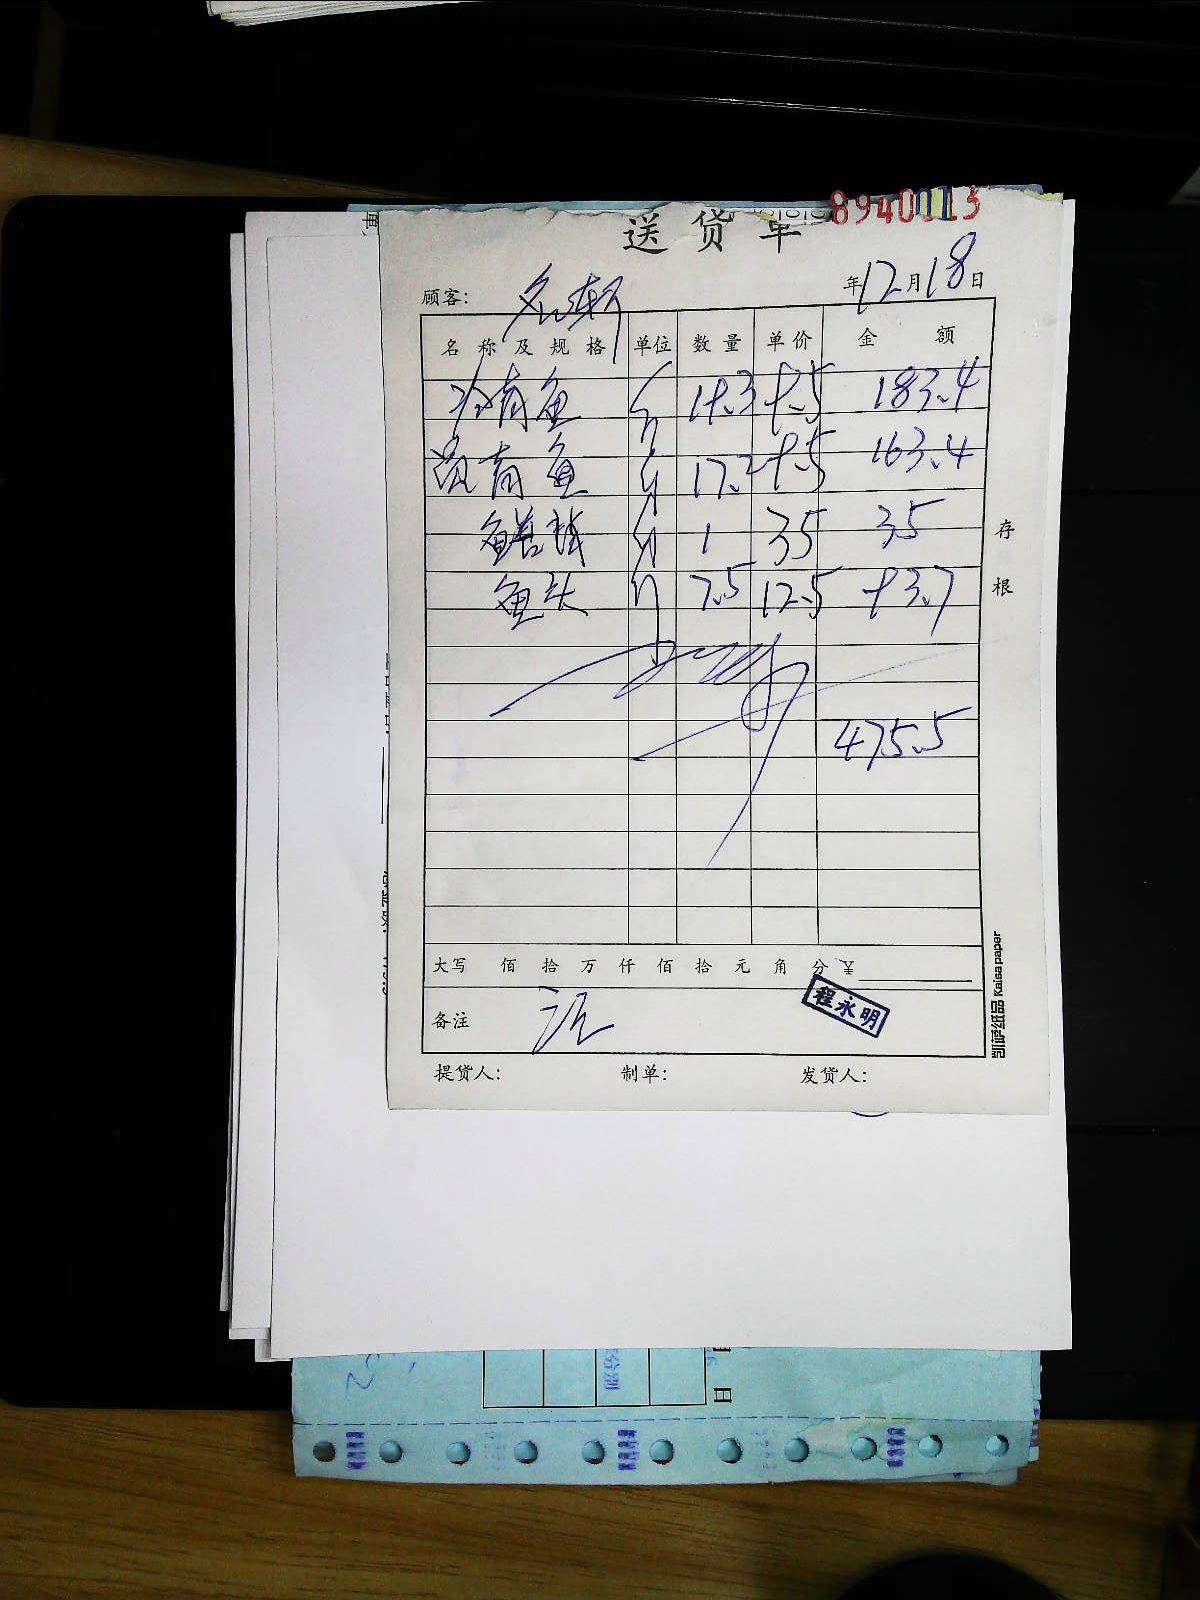 8940113
送货单
顾客: 名轩
年12月18日
名称及规格 单位 数量 单价 金额
冷青鱼 斤 19.3 9.5 183.4
青鱼 斤 17.2 9.5 163.4
鳝 斤 1 35 35
鱼头 斤 7.5 12.5 93.7
475.5
存根
大写 佰 拾 万 仟 佰 拾 元 角 分 ¥
备注
程永明
提货人: 制单: 发货人:
凯萨纸品 Kaisa paper